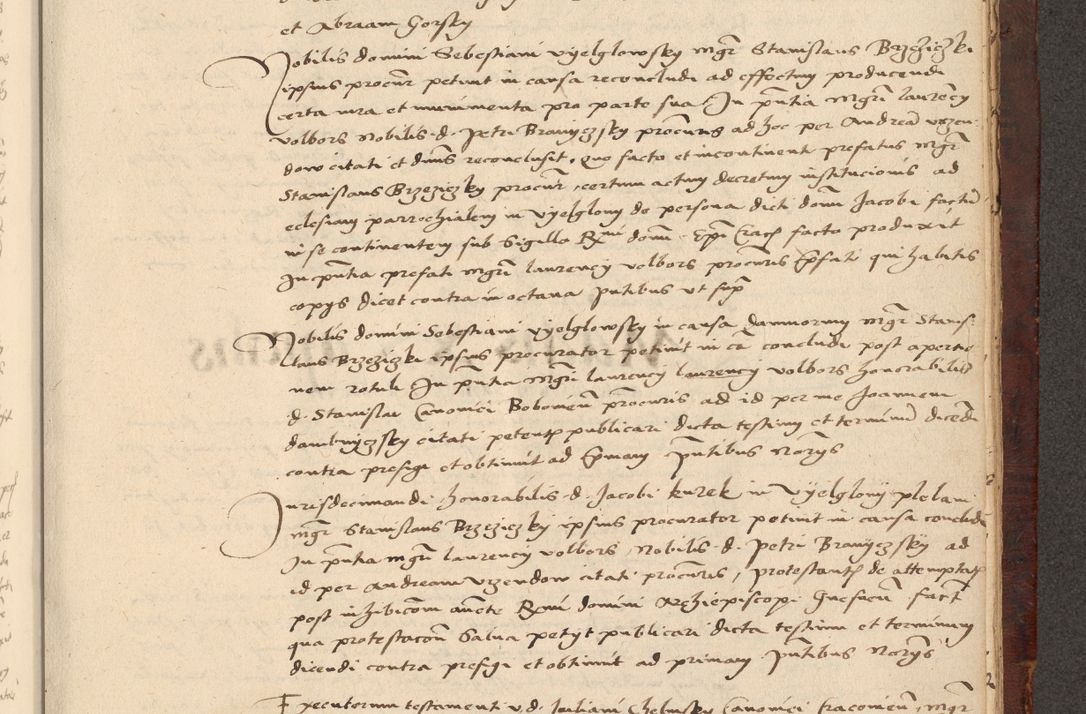 et Abraam Gorsky
Nobilis domini Sebestiani Vyelglowsky mgr Stanislaus Brzeziczki
ipsius procur petivit in causa reconcludi ad effectum producendi
certa iura et munimenta pro parte sua In pntia mgri laurency
volbors Nobilis d. Petri Branyczsky procuris ad hoc per Andrea vrzen
dow citati et dnus reconclusit, quo facto et incontinenti prefatus mgr
Stanislaus Brzeziczky procur, certum actum decretum institucionis ad
eclesiam parrochialem in Vyelglony de persona dicti domi Jacobi factu
in se continentem sub Sigillo Rmi domi Epi Crac facto produxit
In pntia prefati mgri laurency volbors procuris pfati qui habitis
copys dicet contra in octava pntibus vt sup
Nobilis domini Sebestiani Vyelglowsky in causa damnorum mgr Stanis
laus Brzeziczki ipsius procurator petivit in ca concludi post apertio
nem rotuli In pntia mgri laurency laurency volbors honorabilis
d. Stanislai Canonici Bobovien procuris ad id per me Joannem
dambnyczsky citati petent publicari dicta testium et terminu dicedi
contra prefigi et obtinuit ad primam pntibus Norys
Jurisdicinandi honorabilis d. Jacobi kurek in Vyelglony plebani
mgr Stanislaus Brzeziczky ipsius procurator petivit in causa concludi
In pntia mgri laurency volbors Nobilis d. Petri Branyczsky ad
id per Andream vrzendow citati procuris, protestant de attemptat
post inhibicom aucte Rmi domini Archiepiscopi Gnesnen fact
qua protestacon Salua petyt publicari dicta testium et terminum
dicendi contra prefigi et obtinuit ad primam pntibus Norys
Executorum testamenti v. d. Juliani Chelmsky Canonici Cracovien, mgr